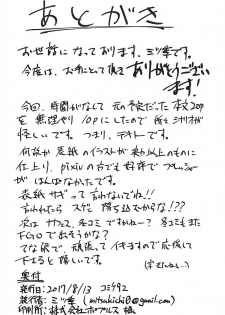 あとがき
お世話になっております、ミツ吉です。
今度は、お手にとって頂き ありがとうござい
ます!
今回、時間がなくて 元の予定だった本文20p
を無理やり 10pにしたので 所々
怪しいです。つまり、テキトーです。
何故か表紙のイラストが以上のものに
仕上り、pixivの方でも好評でプレッシャー
がはんぱなかったです。
表紙サギって言わないでね!!
言われたら スゲェ 落ち込むからな!??
次は 冬コミですかねー? 冬コミもまた
FGOで出そうかな?
てな訳で、頑張ってイキますので応援して
下さると嬉しいです。
奥付
発行日:2017/8/13 コミケ92
発行者:ミツ吉 (mitsukichi0@gmail.com)
印刷所:株式会社ポプルス 様